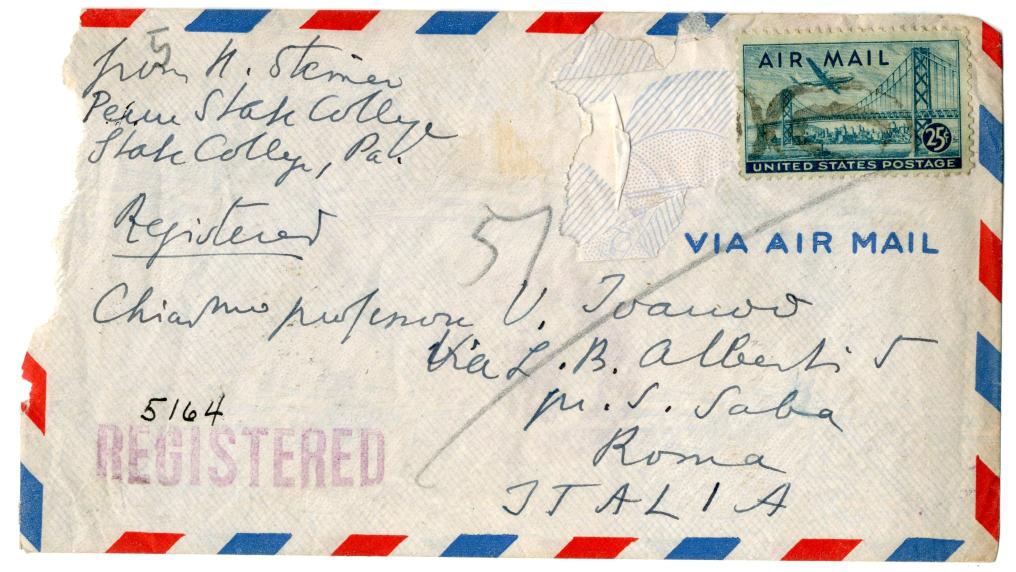 5
from H. Steiner
Penn State College
State College, Pa.
Registered
57
AIR MAIL
25¢
UNITED STATES POSTAGE
VIA AIR MAIL
Chiar.mo professore V. Ivanov
Via L. B. Alberti 5
pr. S. Saba
Roma
ITALIA
5164
REGISTERED